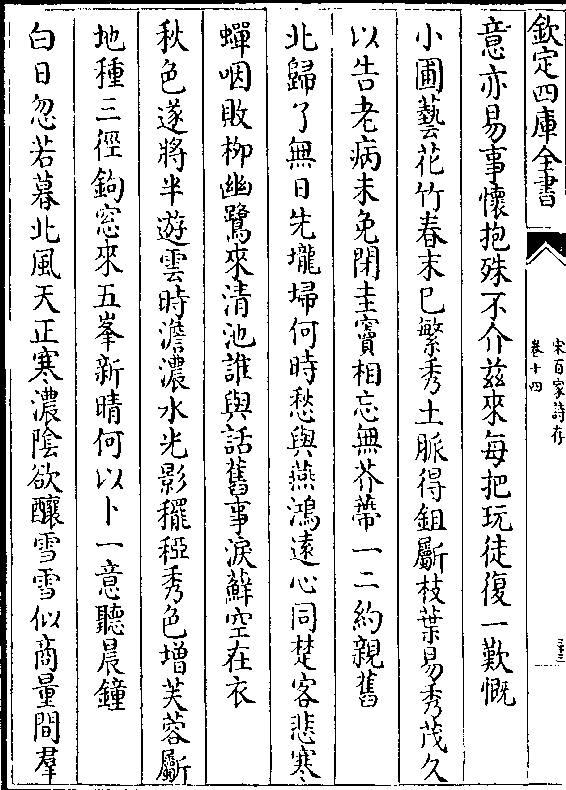 欽定四庫全書
宋百家詩存
卷十四
意亦易事懷抱殊不介兹來每把玩徒復一歎慨
小圃藝花竹春末已繁秀土脈得鉏斸枝葉易秀茂久
以告老病未免閉圭竇相忘無芥蔕一二約親舊
北歸了無日先壠埽何時愁與燕鴻遠心同楚客悲寒
蟬咽敗栁幽鷺來清池誰與話舊事淚蘚空在衣
秋色遂將半遊雲時澹濃水光影䆉稏秀色增芙蓉斸
地種三徑鉤窓來五峯新晴何以卜一意聽晨鐘
白日忽若暮北風天正寒濃陰欲釀雪雪似商量間羣